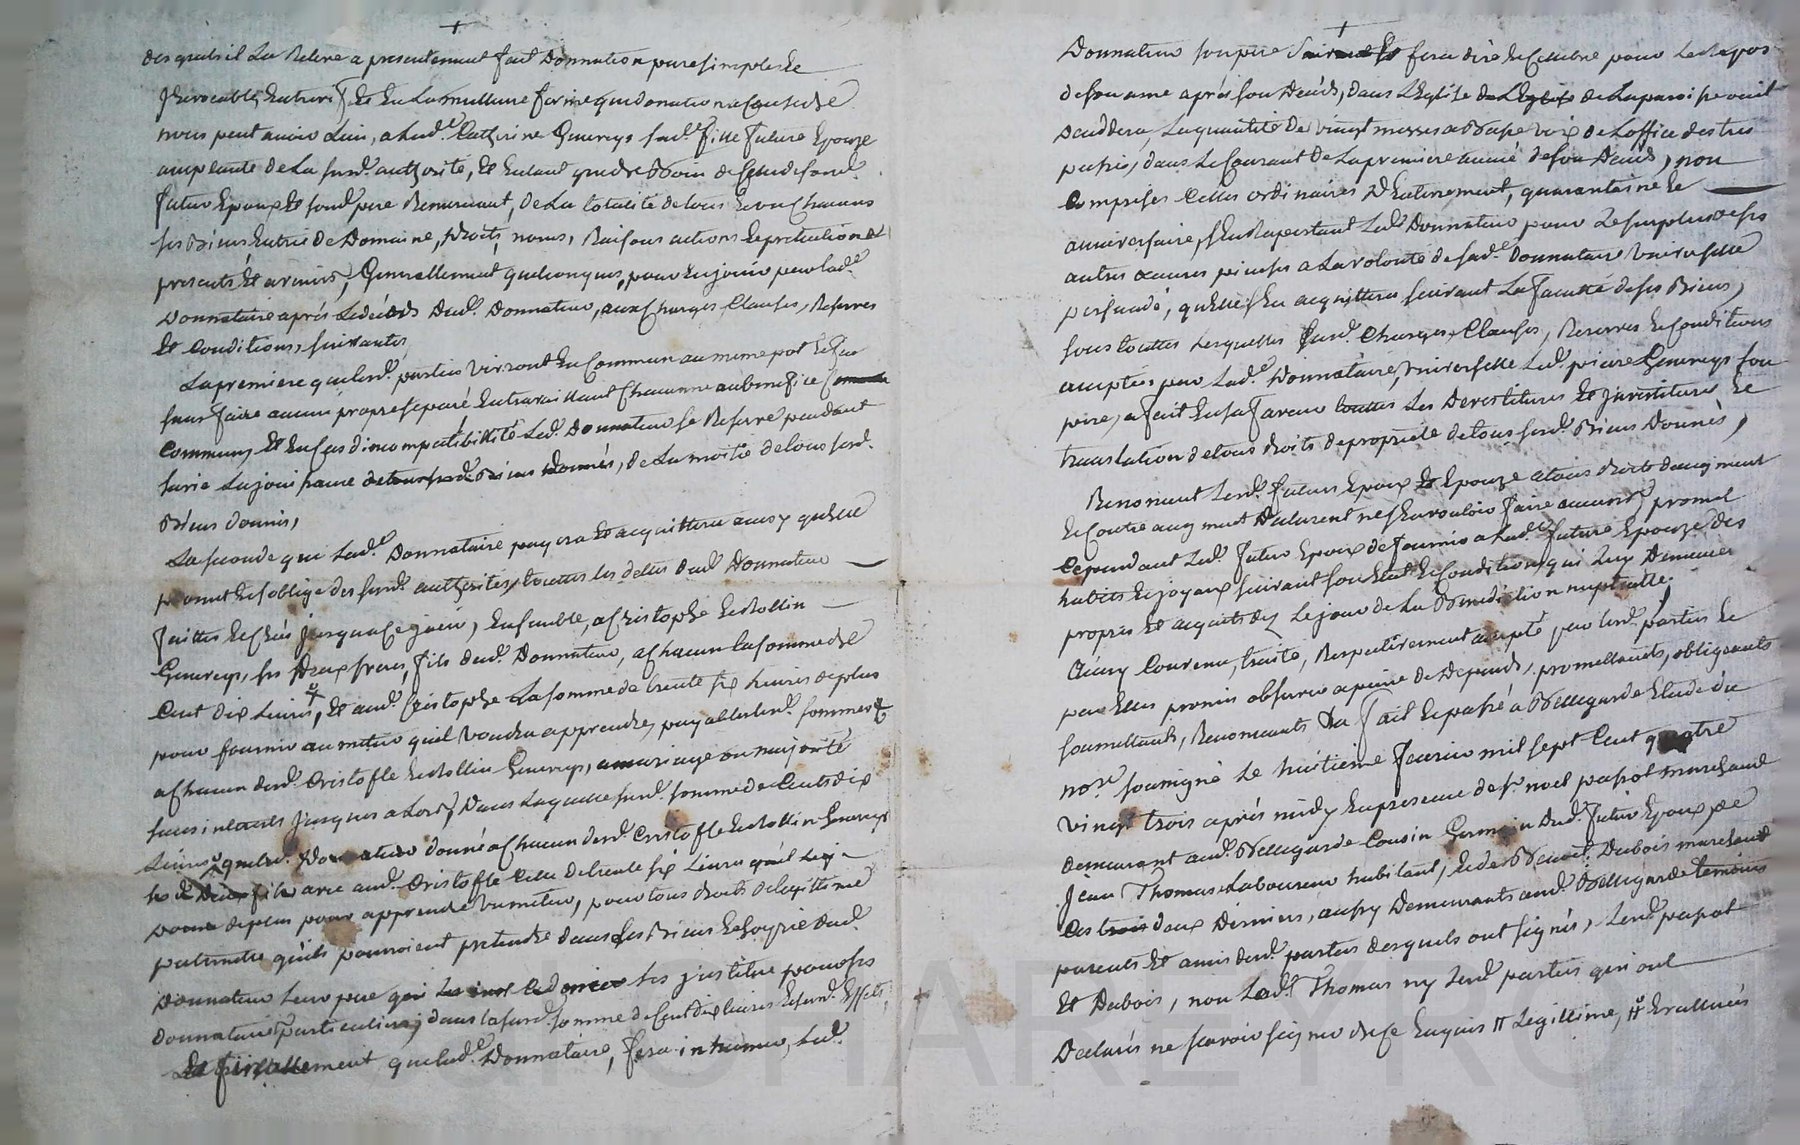 desquels il La Releve a presentement fait Donnation pure simple et
Irrevocable, Entrevifs et En La meilleure forme que donnation a Cause de
nous peut avoir Lieu, a Lad.e Catherine Gourreys sad.e fille future Epouze
acceptante de La susd.e authorité, et
futur Epoux et sond. pere Renonceant, de La totalité de tous Et un Chacuns
ses Biens Entrée de Domaine, droits, noms, Raisons actions Et pretentions
presents Et avenirs, Generallement quelconques, pour En jouir par lad.e
Donnataire aprés Le décéds Dud. Donnateur, aux Charges, Clauses, Reserves
Et Conditions, suivantes,
La premiere que lesd. parties vivront En Commun au meme pot Et feu
sans faire aucun propre separé En travaillant Chacunne au benefice
Commung, Et En Cas d'incompatibillité Led. Donnateur se Reserve pendant
sa vie La jouissance de tous sesd. Biens donnés, de La moitié de tous sesd.
Biens donnés,
La seconde que Lad.e Donnataire payera Et acquittera ainsy qu'elle
promet Et s'oblige des susd. authorités, touttes les dettes dud. Donnateur
faittes Et Crées jusqua Ce jour, Ensemble, a Christophe Et Collin
Gourreys, ses Deux freres, fils dud. Donnateur, a Chacun la somme de
Cent dix Livres, Et aud. Cristophe La somme de trente six Livres de plus
pour fournir au metier quil voudra apprendre, payables lesd. sommes
a Chacun desd. Cristofle Et Collin Gourreys, a mariage ou majorité
sans interets jusques a Lors, Dans Laquelle susd. somme de Cents dix
Livres que led. Donnateur donne a Chacun desd. Cristofle Et Collin Gourreys
ses Deux fils avec aud. Cristofle Celle de trente six Livres qu'il Luy
Donne de plus pour apprendre un metier, pour tous droits de legittime
quils pourroient pretendre dans Les Biens Et hoyrie dud.
Donnateur Leur pere qui Les institue pour ses
donnataires particuliers, dans la susd. somme de Cent dix livres Et susd. Effets,
Et finallement que Lad.e Donnataire, fera inhumer, Led.
Donnateur son pere fera dire Et Celebrer pour Le Repos
de son ame aprés son Décéds, dans L'Eglise de La paroisse ou il
deceddera, La quantité de vingt messes a Basse voix de L'office des tres
passés, dans Le Courant de La premiere année de son Décéds, non
Comprises Celles ordinaires D'Enterrement, quarantaine Et
anniversaire, s'En Raportant Led. Donnateur pour Le surplus de ses
autres oeuvres pieuses a La volonté de sad.e Donnataire universelle
persuadé, quelle s'En acquittera suivant La faculté de ses Biens,
sous touttes Lesquelles susd. Charges, Clauses, Reserves Et Conditions
acceptées par Lad.e Donnataire, universelle Led. pierre Gourreys son
pere, a fait En sa faveur touttes Les Devestitures Et Investitures, Et
translation de tous droits de proprieté de tous sesd. Biens Donnés,
Renonceant Lesd. futurs Epoux Et Epouze a tous droits daugment
Et Contre augment Declarent n'En vouloir faire aucuns, promet
Cependant Led. futur Epoux de fournir a Lad.e future Epouze des
habits Et joyaux suivant son Etat Et Condition qui Luy Demeureront
propres Et acquits dez Le jour de La Benediction nuptialle.
Ainsy Convenu, traité, Respectivement accepté par Lesd. parties Et
par Elles promis observer a peine de Depends, promettants, obligeants
soumettants, Renonceants &a fait Et passé a Bellegarde Etude du
no.re soussigné Le huitieme Fevrier mil sept Cent quatre
vingt trois aprés midy En presence de Sr noel papot marchand
demeurant aud. Bellegarde Cousin Germain Dud. futur Epoux de
Jean Thomas Laboureur habitant, Et de Benoit Dubois marchand
Ces trois deux Derniers, aussy Demeurants aud. Bellegarde temoins
parents Et amis desd. parties desquels ont signés, Lesd. papot
Et Dubois, non Led. Thomas ny Lesd. parties qui ont
Declarés ne scavoir signer de ce Enquis # Legittime, # Evallués